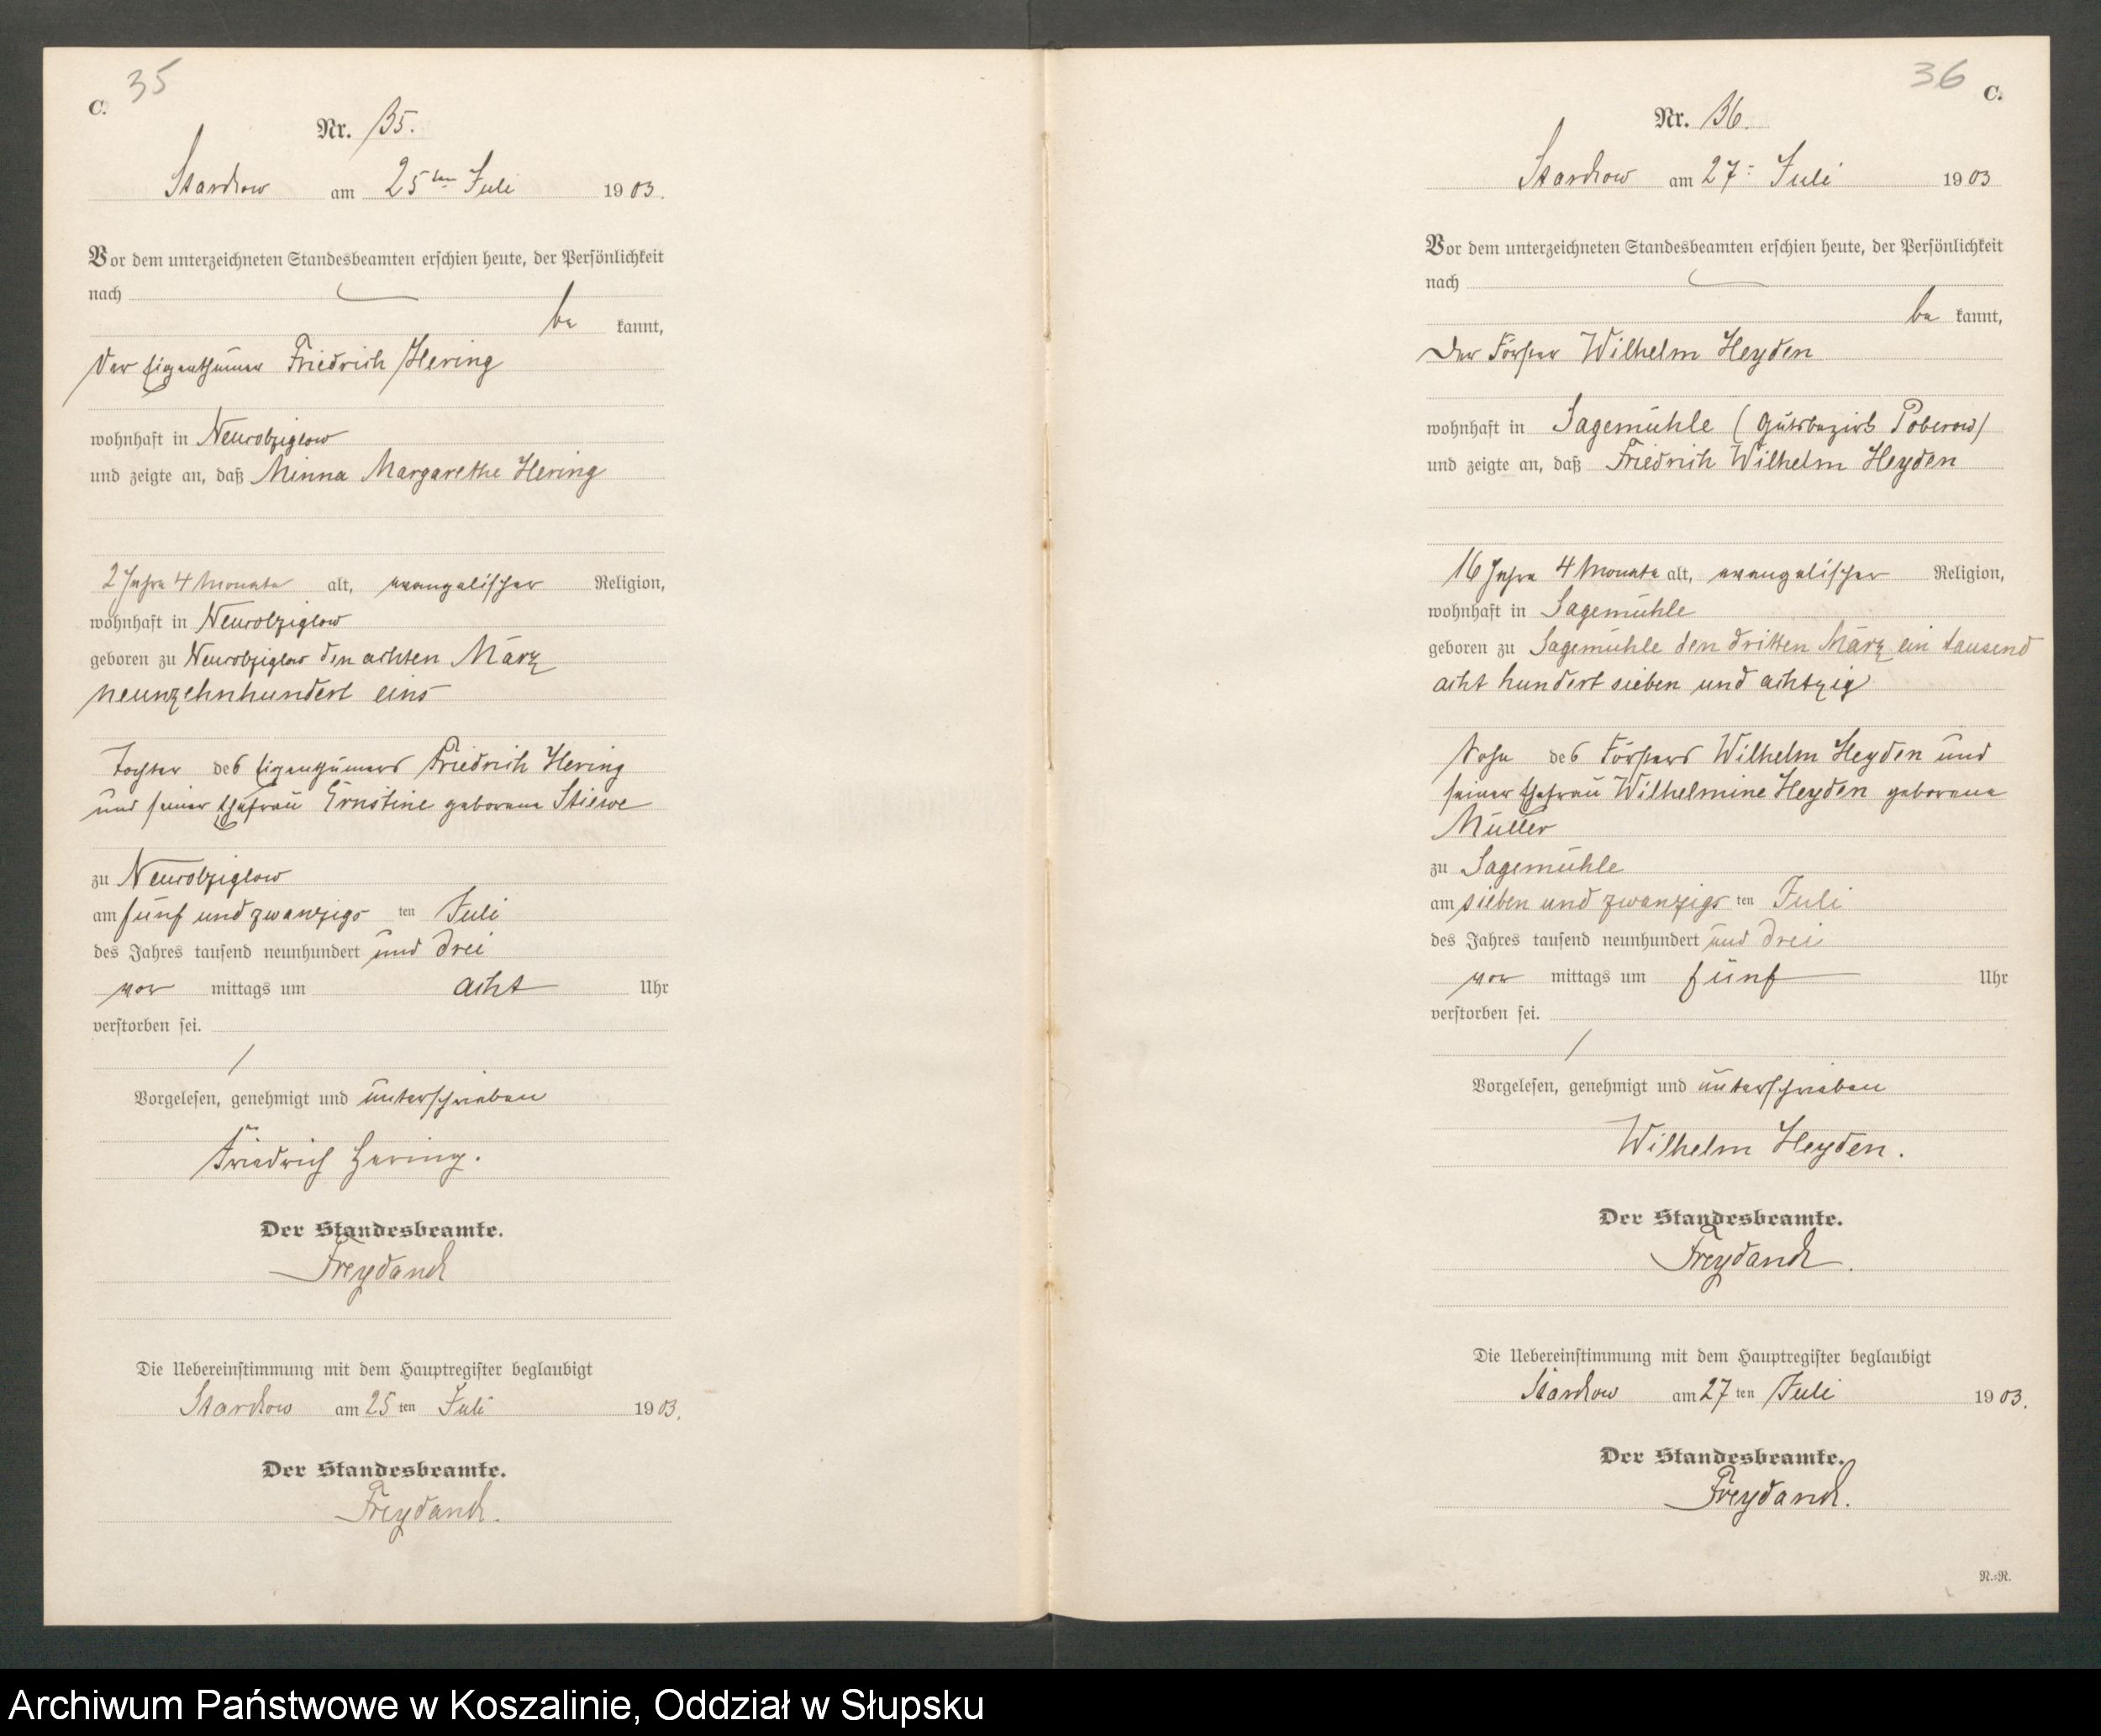 C. 35
Nr. 35.
Starckow am 25ten Juli 1903.
Vor dem unterzeichneten Standesbeamten erschien heute, der Persönlichkeit
nach
be kannt,
der Eigenthümer Friedrich Hering
wohnhaft in Neurolziglow
und zeigte an, daß Minna Margarethe Hering
2 Jahre 4 Monate alt, evangelischer Religion,
wohnhaft in Neurolziglow
geboren zu Neurolziglow den achten März
neunzehnhundert eins
Tochter des Eigenthümers Friedrich Hering
und seiner Ehefrau Ernstine geborene Stiewe
zu Neurolziglow
am fünf und zwanzigs ten Juli
des Jahres tausend neunhundert und drei
vor mittags um acht Uhr
verstorben sei.
Vorgelesen, genehmigt und unterschrieben
Friedrich Hering.
Der Standesbeamte.
Freydanck
Die Uebereinstimmung mit dem Hauptregister beglaubigt
Starckow am 25 ten Juli 1903.
Der Standesbeamte.
Freydanck.
36 C.
Nr. 36.
Starckow am 27. Juli 1903
Vor dem unterzeichneten Standesbeamten erschien heute, der Persönlichkeit
nach
be kannt,
der Förster Wilhelm Heyden
wohnhaft in Sagemühle (Gutsbezirk Poberow)
und zeigte an, daß Friedrich Wilhelm Heyden
16 Jahre 4 Monate alt, evangelischer Religion,
wohnhaft in Sagemühle
geboren zu Sagemühle den dritten März ein tausend
acht hundert sieben und achtzig
Sohn des Försters Wilhelm Heyden und
seiner Ehefrau Wilhelmine Heyden geborene
Müller
zu Sagemühle
am sieben und zwanzigs ten Juli
des Jahres tausend neunhundert und drei
vor mittags um fünf Uhr
verstorben sei.
Vorgelesen, genehmigt und unterschrieben
Wilhelm Heyden.
Der Standesbeamte.
Freydanck.
Die Uebereinstimmung mit dem Hauptregister beglaubigt
Starckow am 27 ten Juli 1903.
Der Standesbeamte.
Freydanck.
N.=N.
Archiwum Państwowe w Koszalinie, Oddział w Słupsku